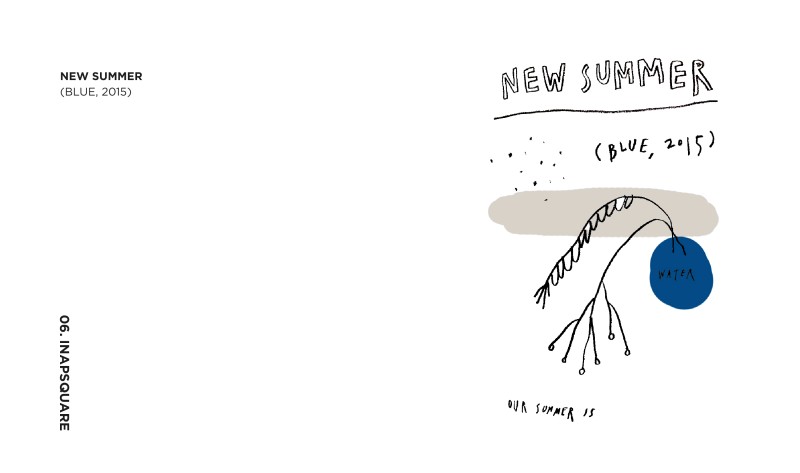 NEW SUMMER
(BLUE, 2015)
06. INAPSQUARE
NEW SUMMER
(BLUE, 2015)
WATER
OUR SUMMER IS